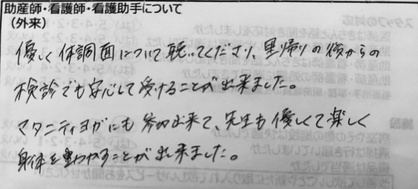 助産師・看護師・看護助手について
(外来)
優しく体調面について聴いてくださり、里帰りの後からの
検診でも安心して受けることが出来ました。
マタニティヨガにも参加出来て、先生も優しくて楽しく
身体を動かすことが出来ました。